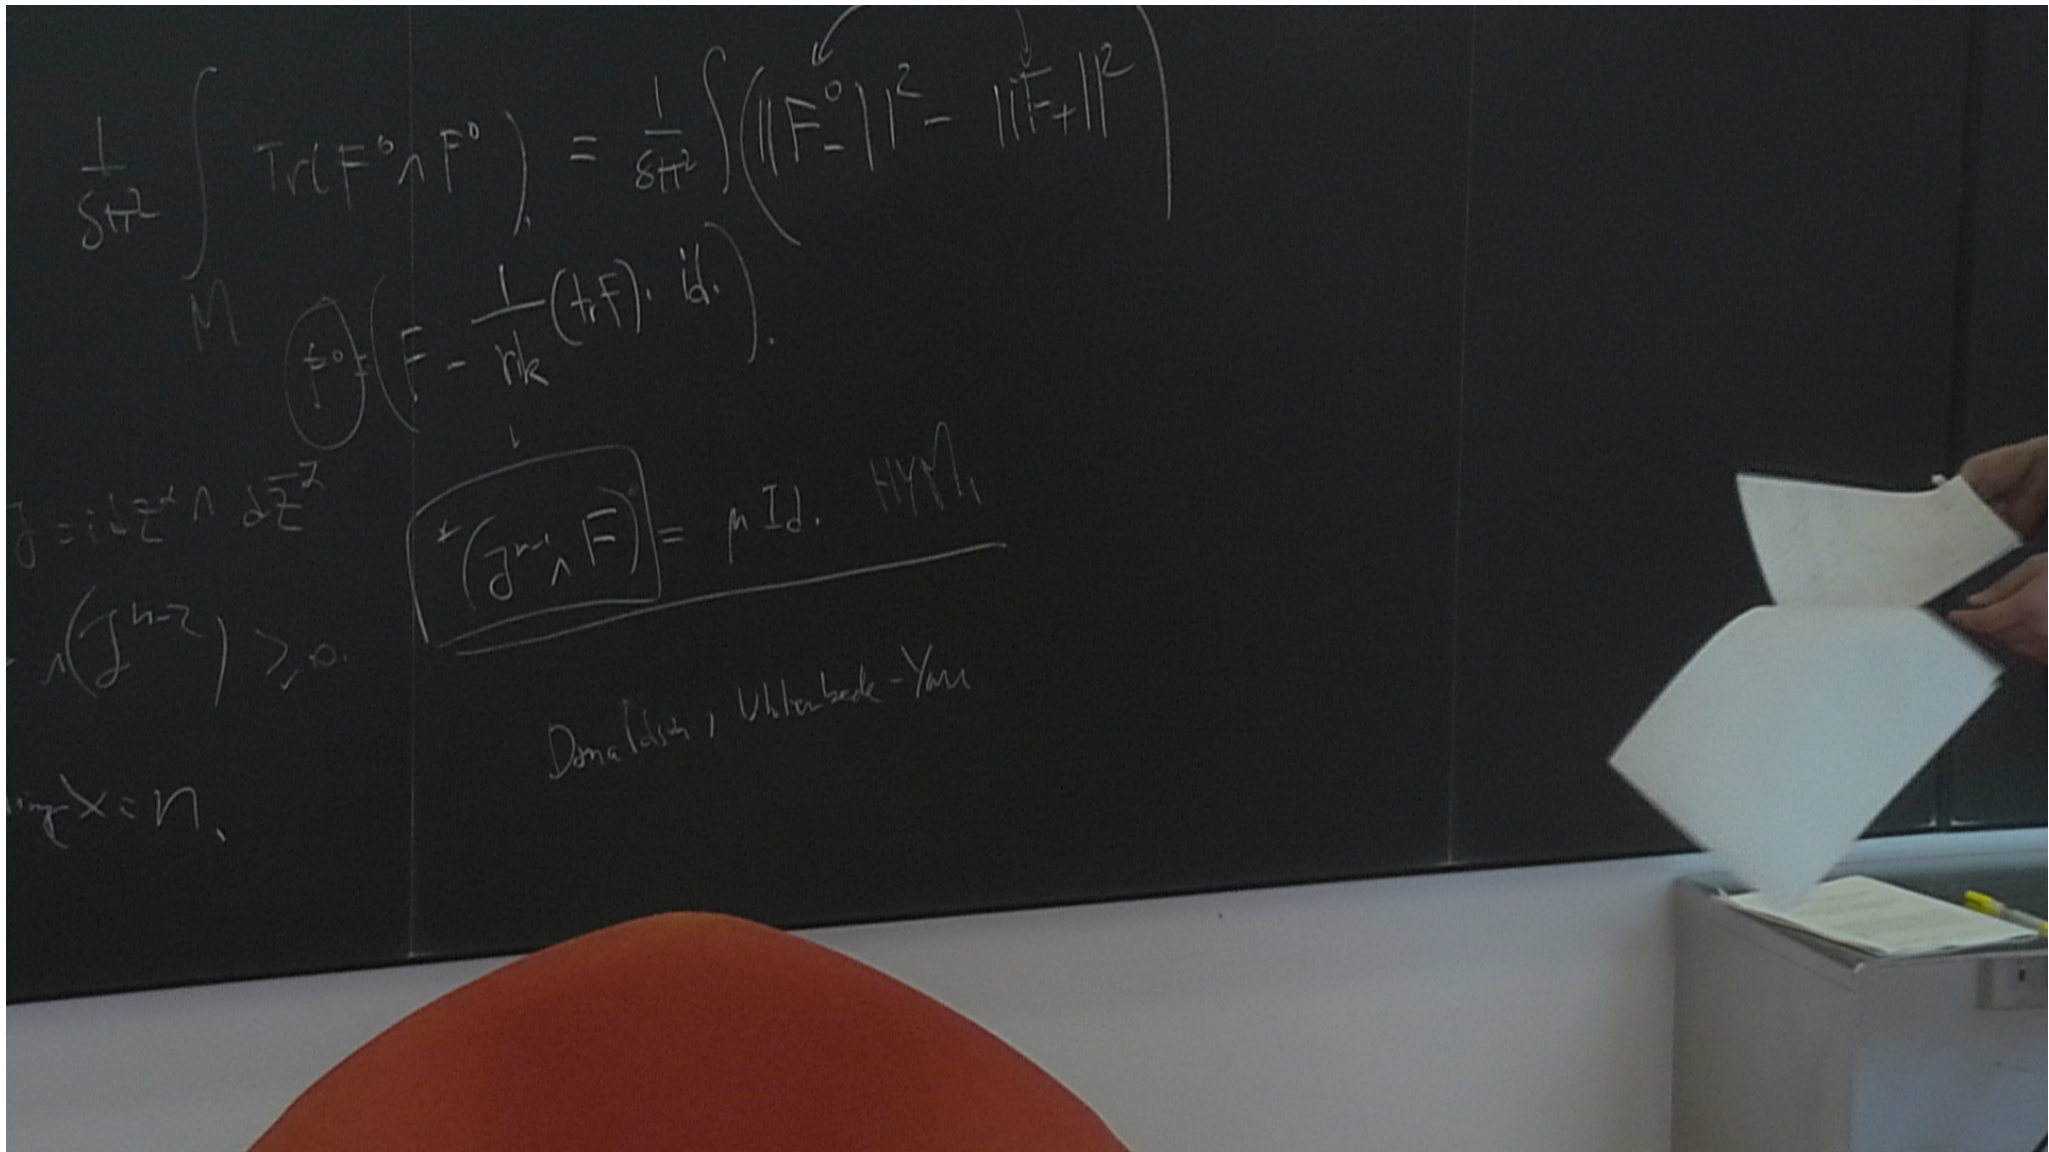 1/8π² ∫_M Tr(F⁰ ∧ F⁰). = 1/8π² ∫ (||F₋⁰||² - ||F₊||²)
F⁰ = (F - 1/rk (trF) · id.).
J = i dz^α ∧ dz̄^α
*(J^{n-1} ∧ F) = μ Id. HYM,
∧ (J^{n-2}) ≥ 0.
Donaldson, Uhlenbeck-Yau
X = n.